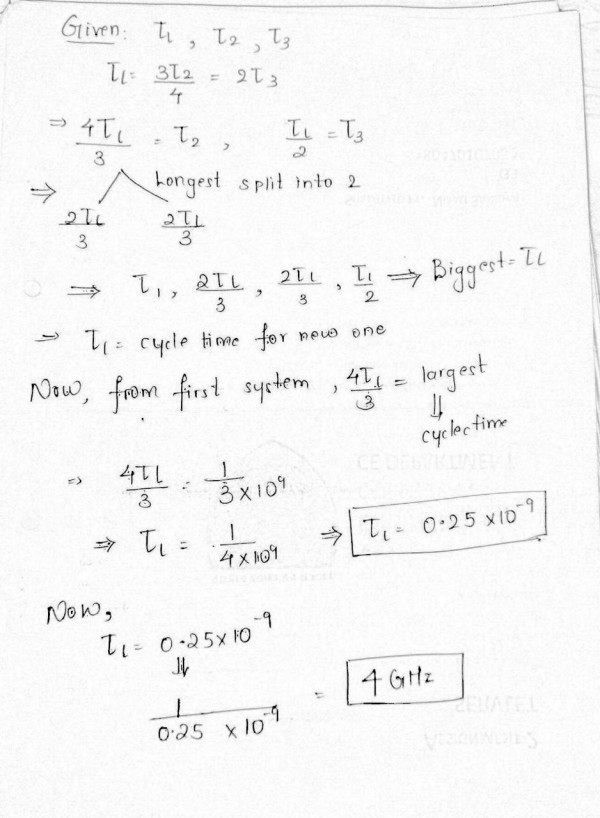 Given: τ₁ , τ₂ , τ₃
τ₁ = 3τ₂/4 = 2τ₃
⇒ 4τ₁/3 = τ₂ , τ₁/2 = τ₃
⇒ Longest split into 2
2τ₁/3 2τ₁/3
⇒ τ₁, 2τ₁/3 , 2τ₁/3 , τ₁/2 ⇒ Biggest = τ₁
⇒ τ₁ = cycle time for new one
Now, from first system , 4τ₁/3 = largest
⇓
cycle time
⇒ 4τ₁/3 = 1/3×10⁹
⇒ τ₁ = 1/4×10⁹ ⇒ τ₁ = 0.25 ×10⁻⁹
Now,
τ₁ = 0.25×10⁻⁹
⇓
1/0.25 ×10⁻⁹ = 4 GHz
CE DEPARTMENT
ASSIGNMENT-2